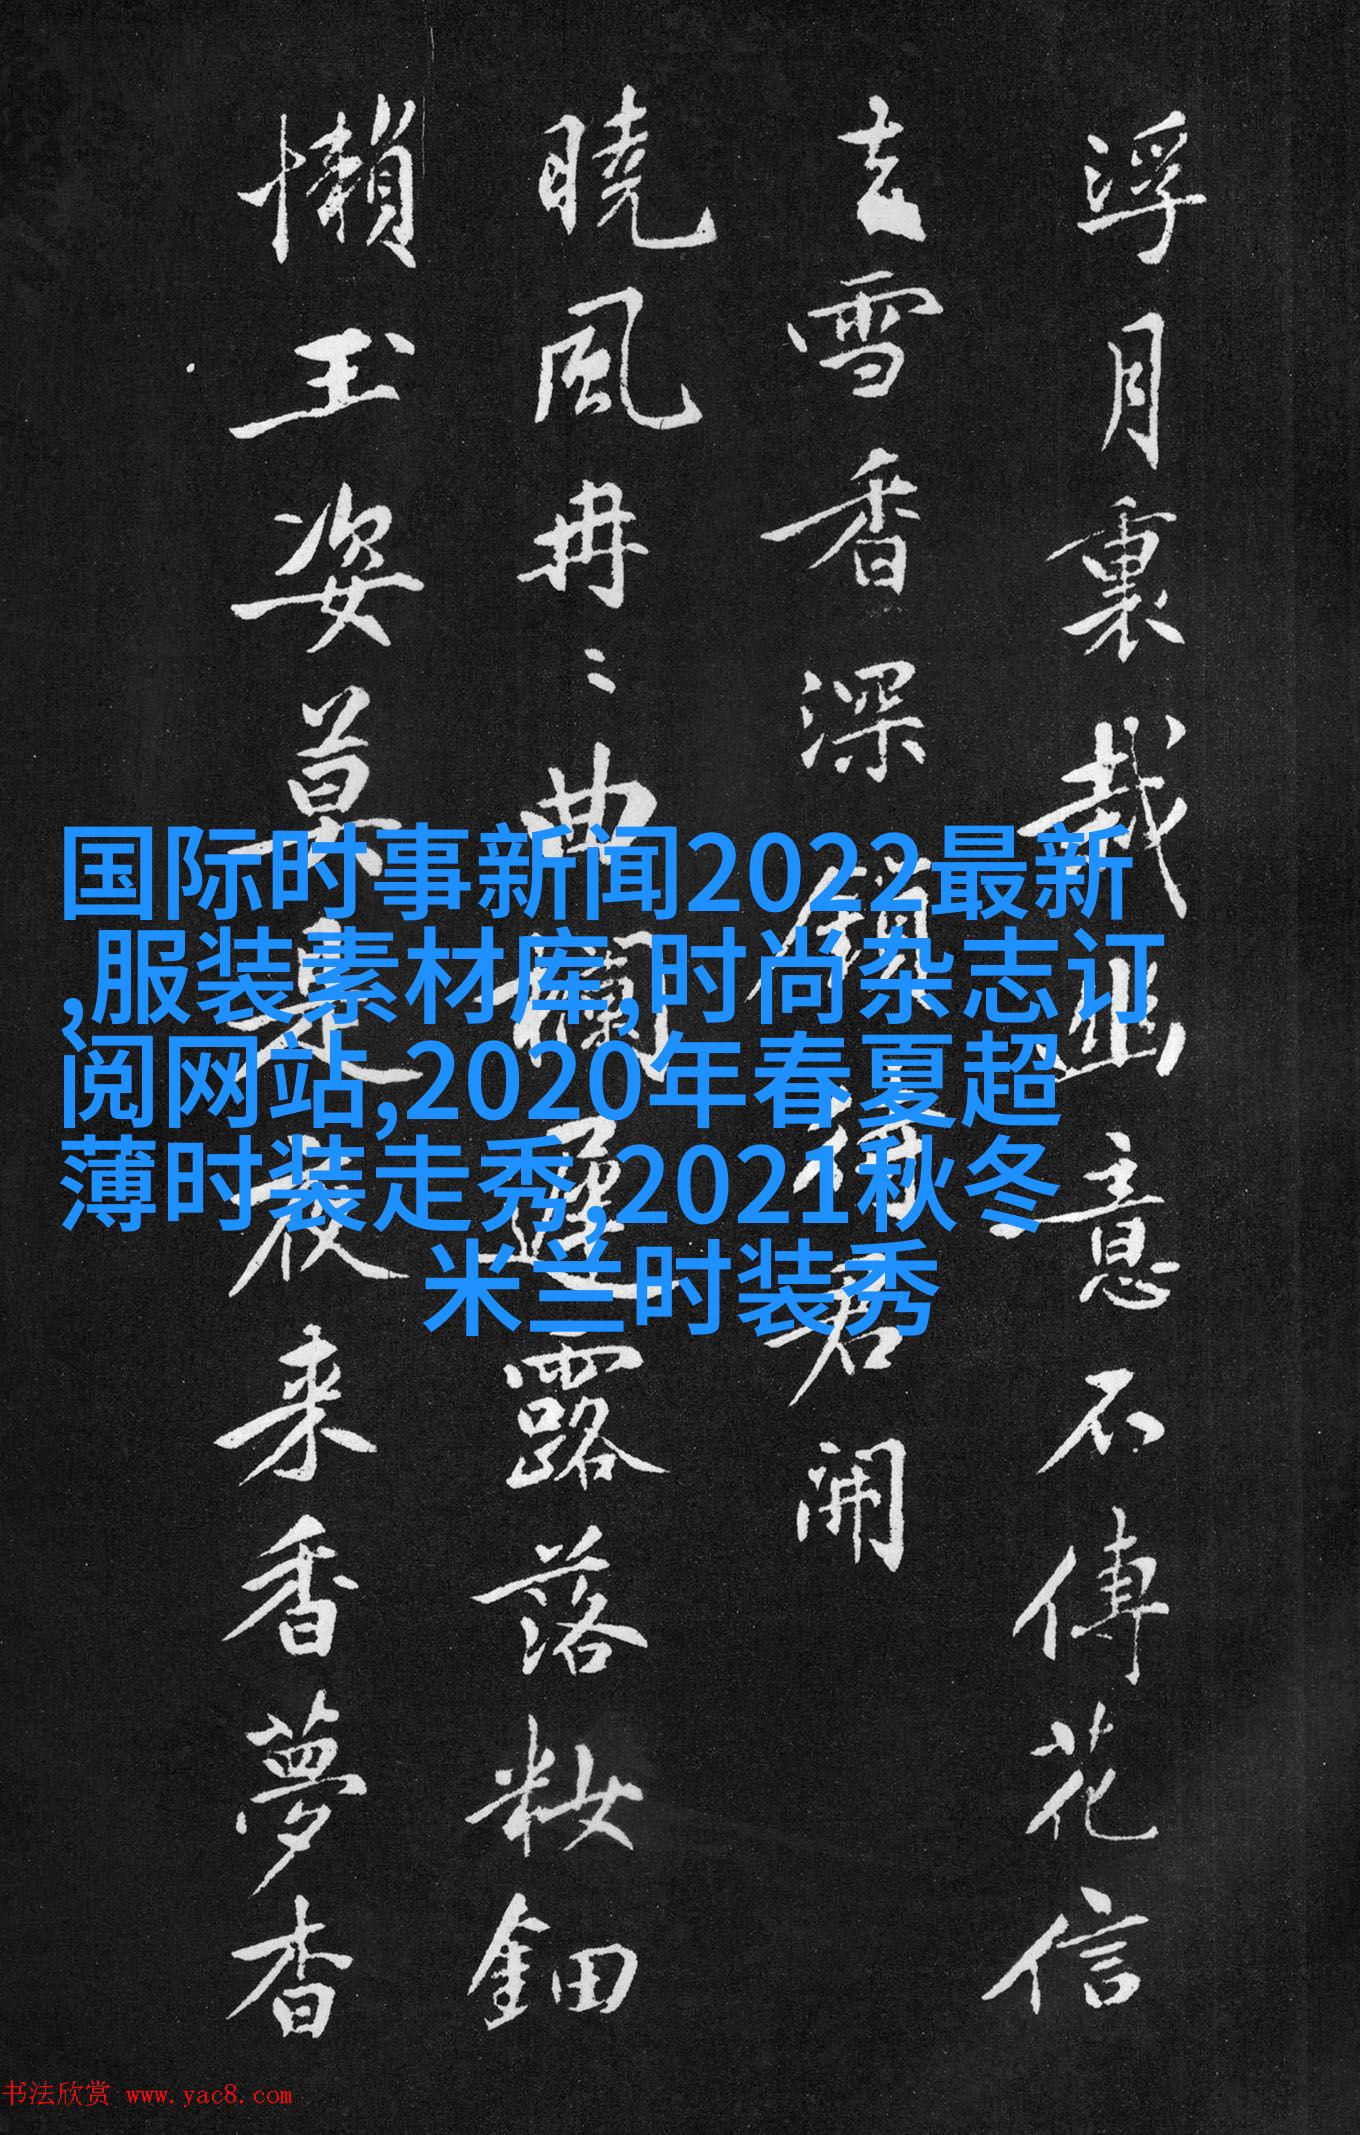 浮月裏幽意不傳花信
去雪香深鎖待君開
曉風冉〻曲欄邊露落粧鈿
懶玉姿莫是夜来香夢杳
国际时事新闻2022最新
,服装素材库,时尚杂志订
阅网站,2020年春夏超
薄时装走秀,2021秋冬
米兰时装秀
书法欣赏 www.yac8.com